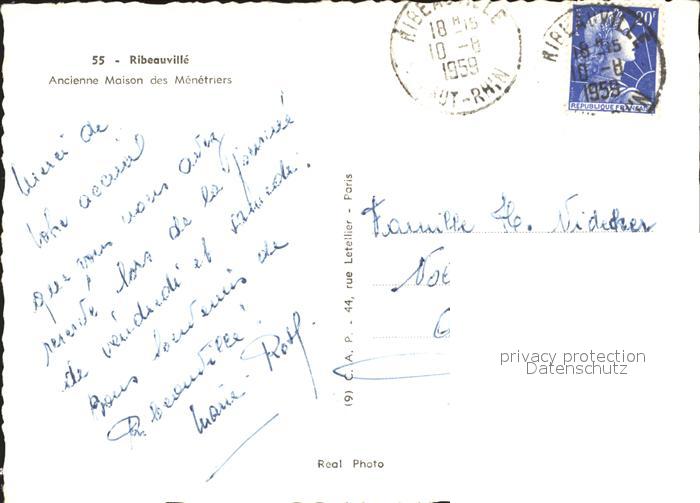 55 - Ribeauvillé
Ancienne Maison des Ménétriers
RIBEAUVILLE
18 H 15
10 -8
1959
HAUT-RHIN
20F
RIBEAUVILLE
18 H 15
10 -8
1959
REPUBLIQUE FRANÇAISE
Merci de
votre accueil
que vous nous avez
réservé lors de la journée
de vendredi et samedi.
Bons souvenirs de
Ribeauvillé.
Marie-Rose.
(9) C. A. P. - 44, rue Letellier - Paris
Famille H. Videcker
privacy protection
Datenschutz
Real Photo